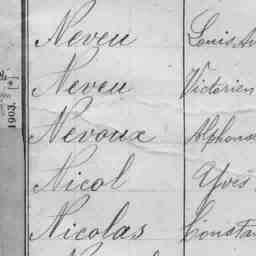 Neveu Louis
Neveu Victorien
Nevoux Alphonse
Nicol Yves
Nicolas Constan
1903.